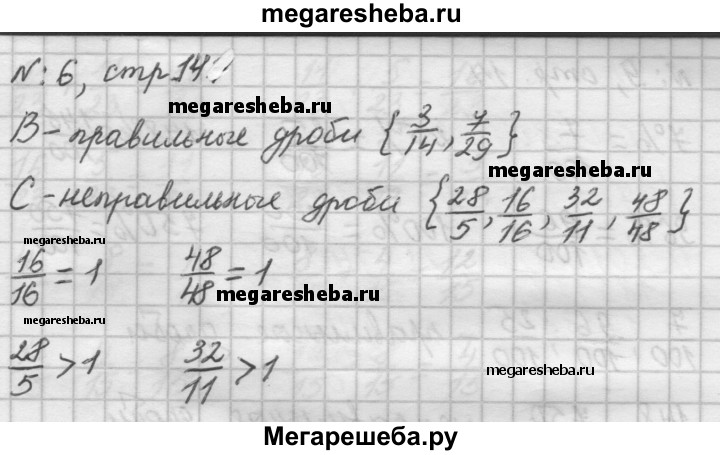 megaresheba.ru
№: 6, стр 14.
megaresheba.ru
B - правильные дроби {3/14, 7/29}
megaresheba.ru
C - неправильные дроби {28/5, 16/16, 32/11, 48/48}
megaresheba.ru
16/16 = 1 48/48 = 1
megaresheba.ru
megaresheba.ru
28/5 > 1 32/11 > 1
megaresheba.ru
Мегарешеба.ру